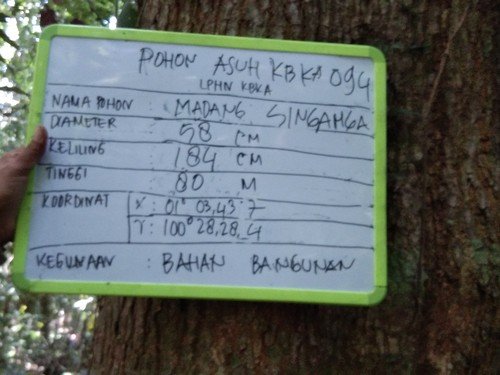 POHON ASUH KBKA 094
LPHN KBKA
NAMA POHON : MADANG SINGAHGA
DIAMETER : 58 CM
KELILING : 184 CM
TINGGI : 80 M
KOORDINAT X : 01° 03,43.7
Y : 100° 28,28,4
KEGUNAAN : BAHAN BANGUNAN